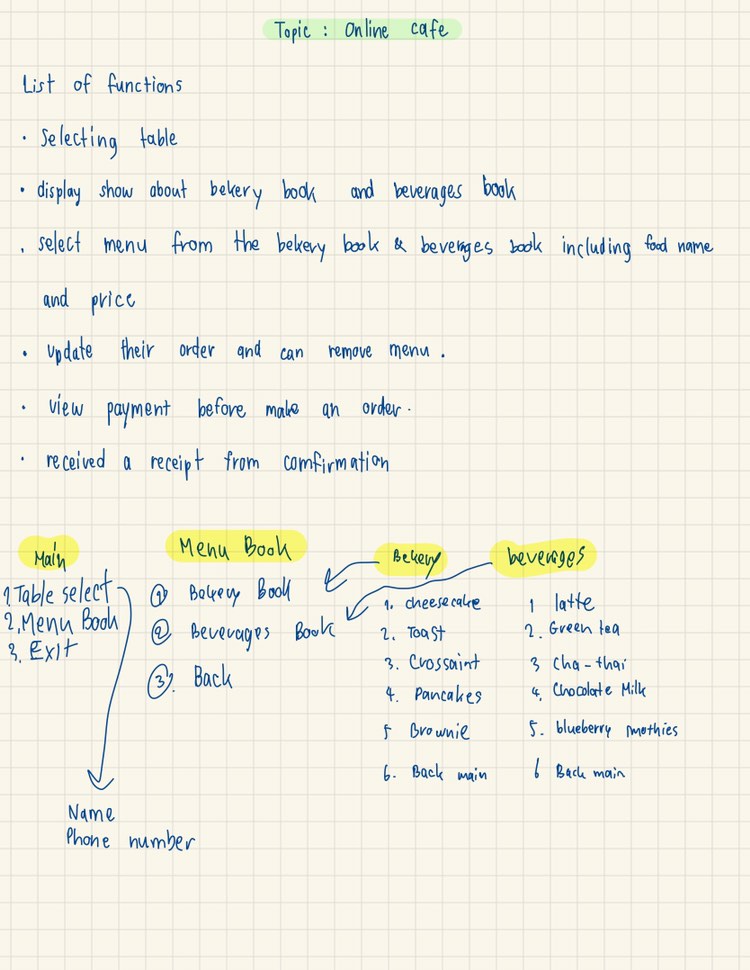 Topic : Online cafe
List of functions
• Selecting table
• display show about bekery book and beverages book
• select menu from the bekery book & beverages book including food name
and price
• update their order and can remove menu .
• view payment before make an order.
• received a receipt from comfirmation
Main
1. Table select
2. Menu Book
3. Exit
Name
Phone number
Menu Book
① Bakery Book
② Beverages Book
③. Back
Bekery
1. cheesecake
2. Toast
3. Crossaint
4. Pancakes
5 Brownie
6. Back main
beverages
1 latte
2. Green tea
3 Cha-thai
4. Chocolate Milk
5. blueberry smothies
6 Back main